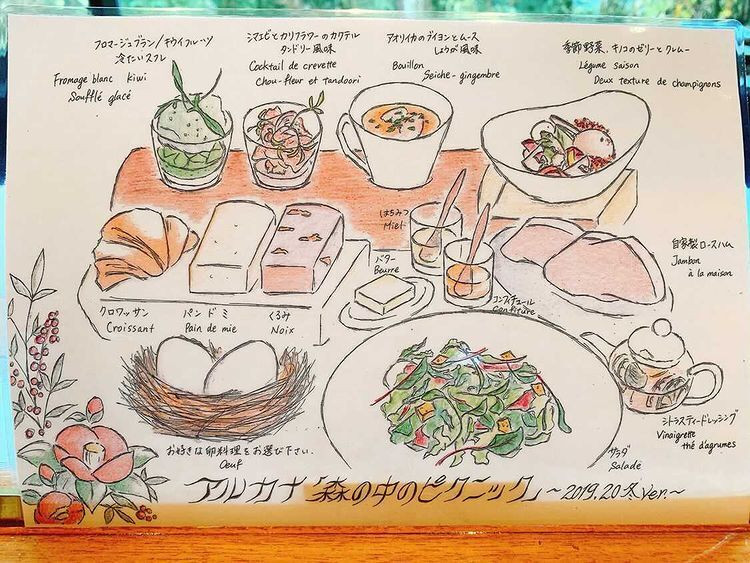 フロマージュブラン/キウイフルーツ
冷たいスフレ
Fromage blanc kiwi
Soufflé glacé
シマエビとカリフラワーのカクテル
タンドリー風味
Cocktail de crevette
Chou-fleur et tandoori
アオリイカのブイヨンとムース
しょうが風味
Bouillon
Seiche-gingembre
季節野菜、キノコのゼリーとクレムー
Légume saison
Deux texture de champignons
はちみつ
Miel
バター
Beurre
コンフィチュール
confiture
自家製ロースハム
Jambon
à la maison
クロワッサン
Croissant
パンドミ
Pain de mie
くるみ
Noix
お好きな卵料理をお選び下さい.
Oeuf
サラダ
Salade
シトラスティードレッシング
Vinaigrette
thé d'agrumes
アルカナ 森の中のピクニック ~2019.20冬ver.~